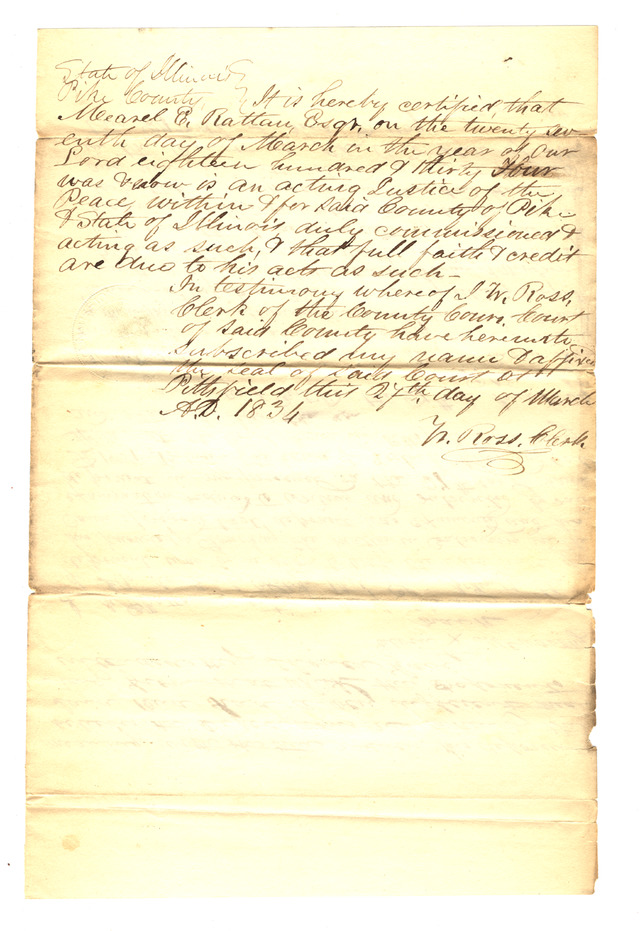 State of Illinois
Pike County } It is hereby certified, that
E. Rattan, Esqr. on the twenty sev
enth day of March in the year of Our
Lord eighteen hundred & thirty Four
was & now is an acting Justice of the
Peace within & for said County of Pike
& State of Illinois duly commissioned &
acting as such, & that full faith & credit
are due to his acts as such—
In testimony whereof I W. Ross.
Clerk of the County Com. Court
of said County have hereunto
subscribed my name & affixed
the seal of said Court at
Pittsfield this 27th day of March
A.D. 1834
W. Ross. Clerk